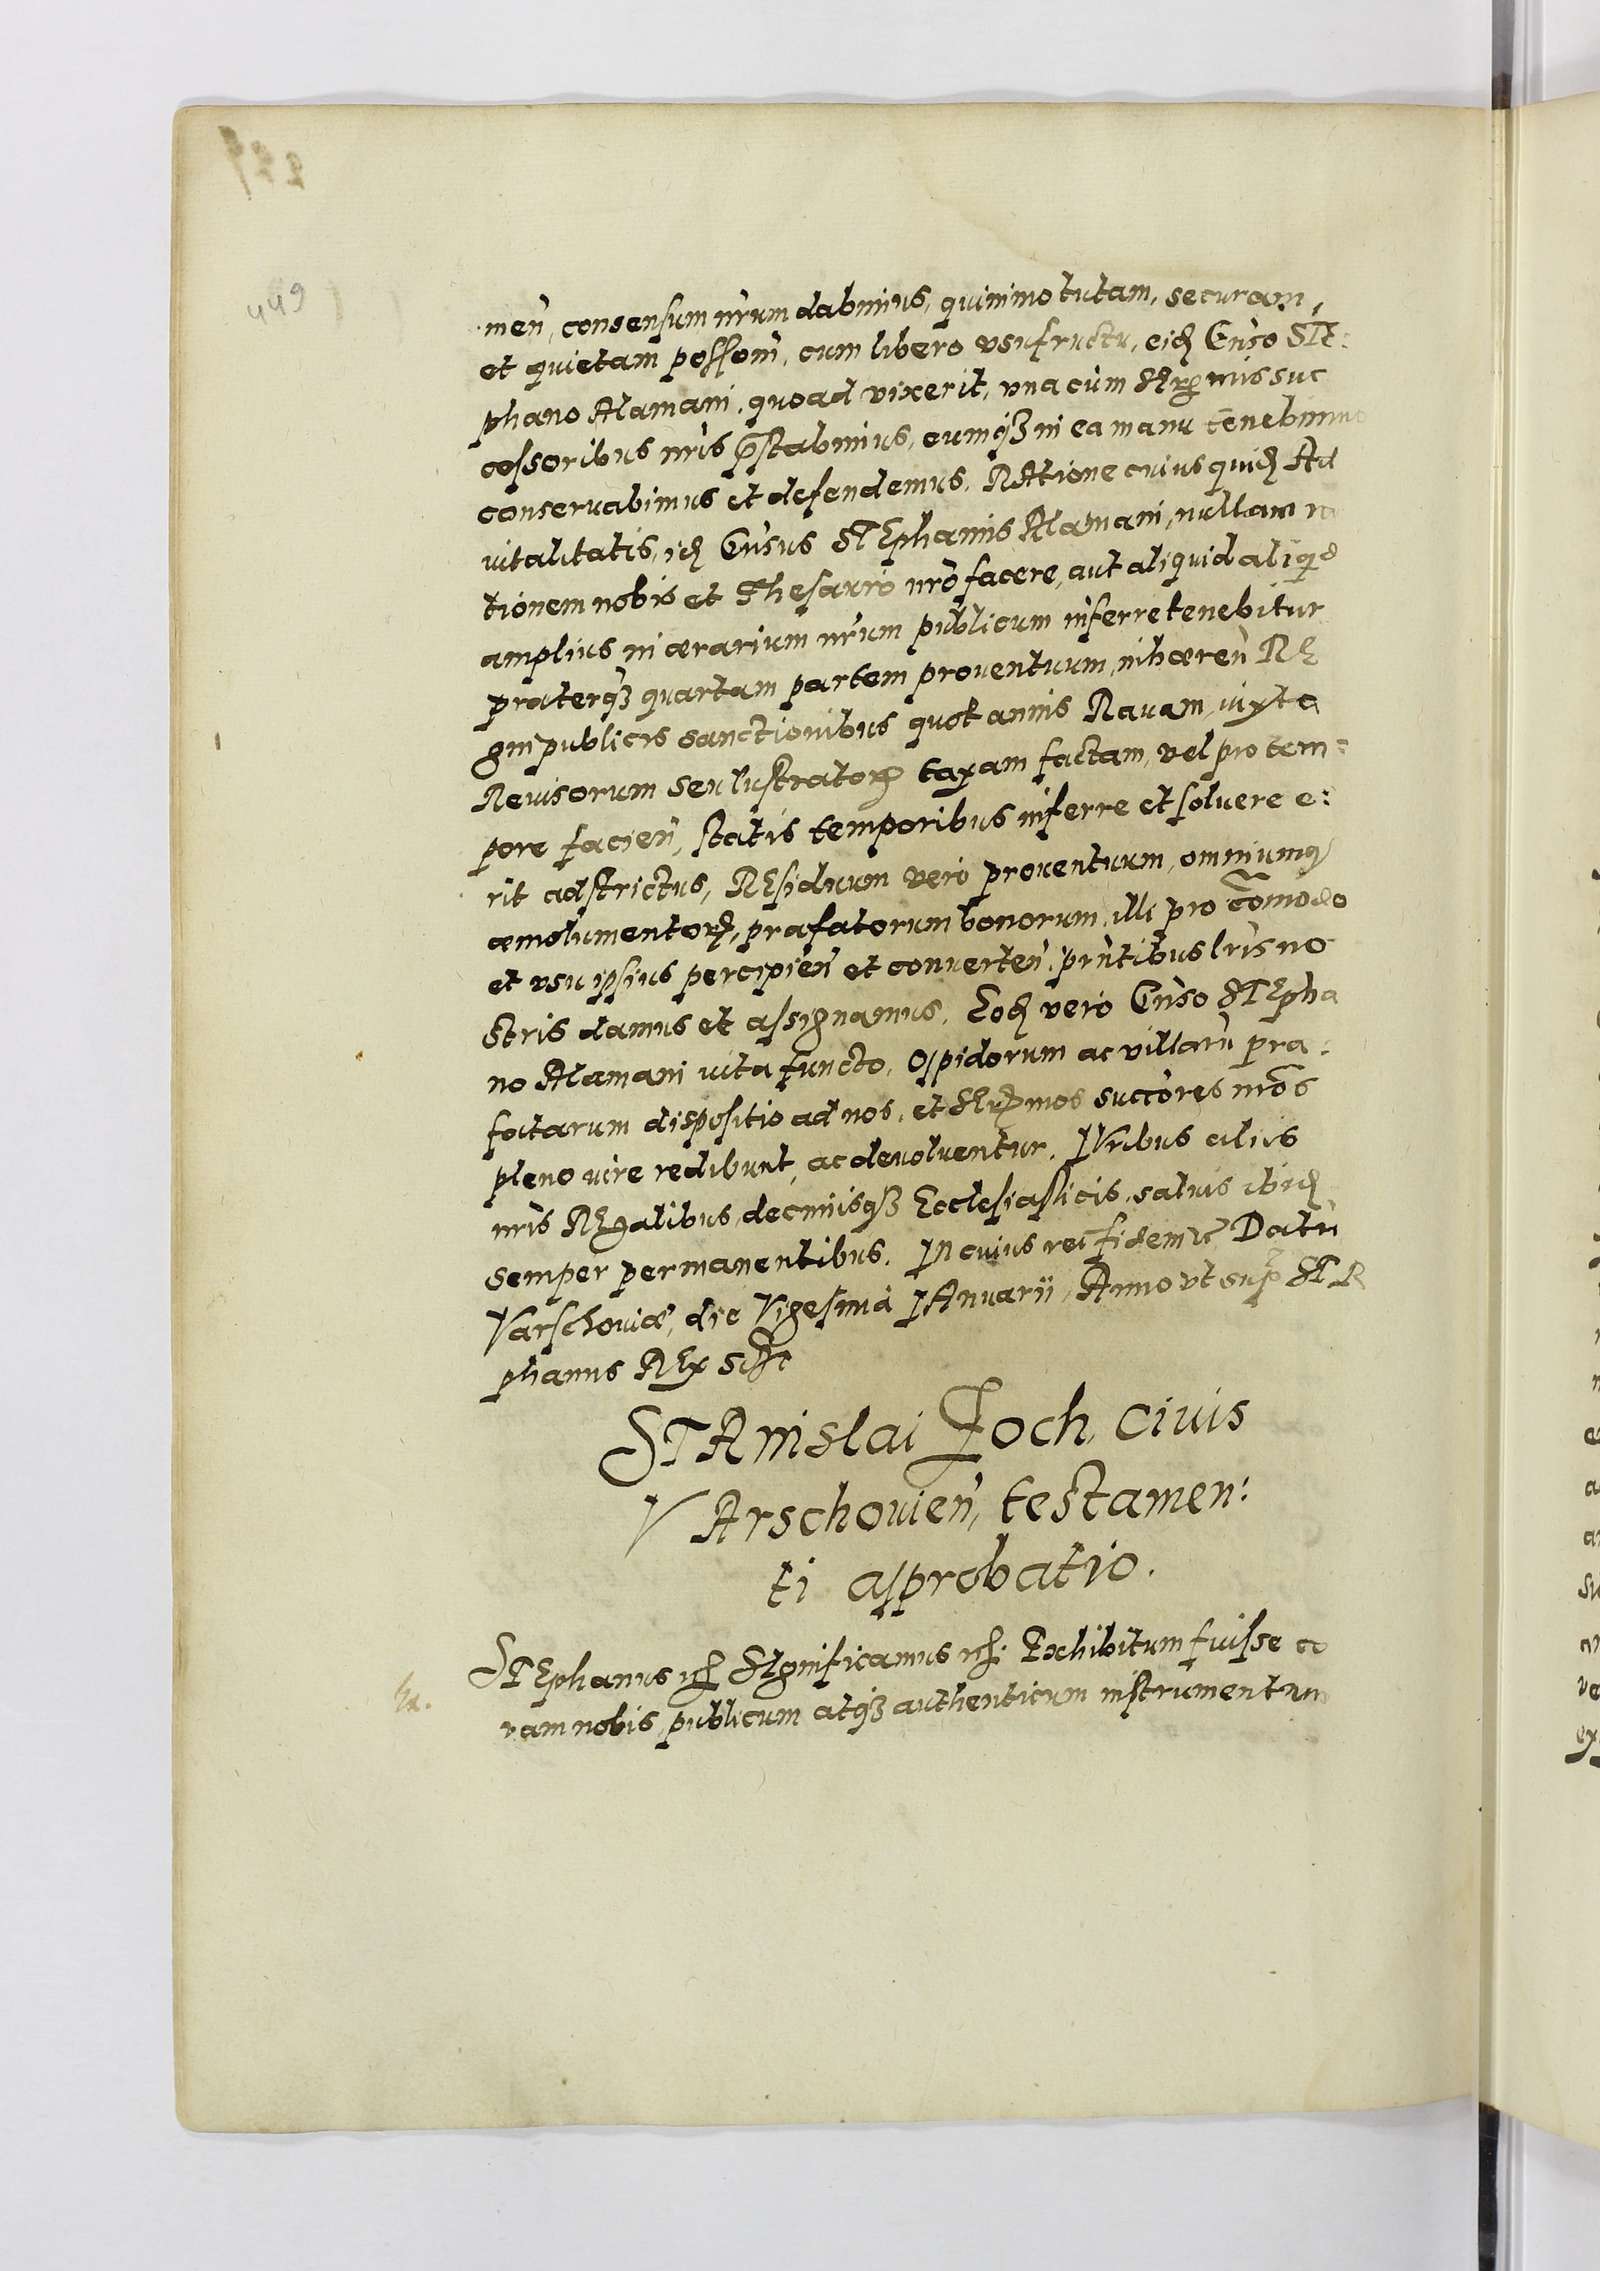 449
men̄, consensum nr̄um dabimus, quinimo tutam, securam,
et quietam possom̄, cum libero vsufructu, eid Gn̄so STE:
phano Alamani, quoad vixerit, vna cum SErmis suc
cessoribus nr̄is p̄stabimus, eumq3 in ea manu tenebimus
conseruabimus et defendemus. RAtione cuius quid Ad
vitalitatis, id Gn̄sus STEphanus Alamani, nullam ra
tionem nobis et Thesauro nr̄o facere, aut aliquid aliqd
amplius in ærarium nr̄um publicum inferre tenebitur
præterq3 quartam partem prouentuum, inhæren̄ RE
gni publicis sanctionibus quotannis Rauam, iuxta
Reuisorum seu lustratorꝝ taxam factam, vel pro tem:
pore facien̄, statis temporibus inferre et soluere e:
rit adstrictus, REsiduum vero prouentuum, omniumq
æmolumentorꝝ, præfatorum bonorum, illi pro com̄odo
et vsu ipsius percipien̄ et conuerten̄, prn̄tibus lr̄is no
stris damus et assignamus. Eod vero Gn̄so STEpha
no Alamani vita functo, Oppidorum ac villarū præ:
fatarum dispositio ad nos, et SErmos succōres nr̄os
pleno iure redibunt, ac deuoluentur. IVribus aliis
nr̄is REgalibus, decimisq3 Ecclesiasticis, saluis ibid
semper permanentibus. IN cuius rei fidem etc Datū
Varschouiæ, die Vigesima IAnuarii, Anno vt sup̄ STE
phanus REx sst
STAnislai Foch, ciuis
VArschouien̄, testamen:
ti approbatio.
STEphanus etc SIgnificamus etc. Exhibitum fuisse co
ram nobis, publicum atq3 authenticum instrumentum